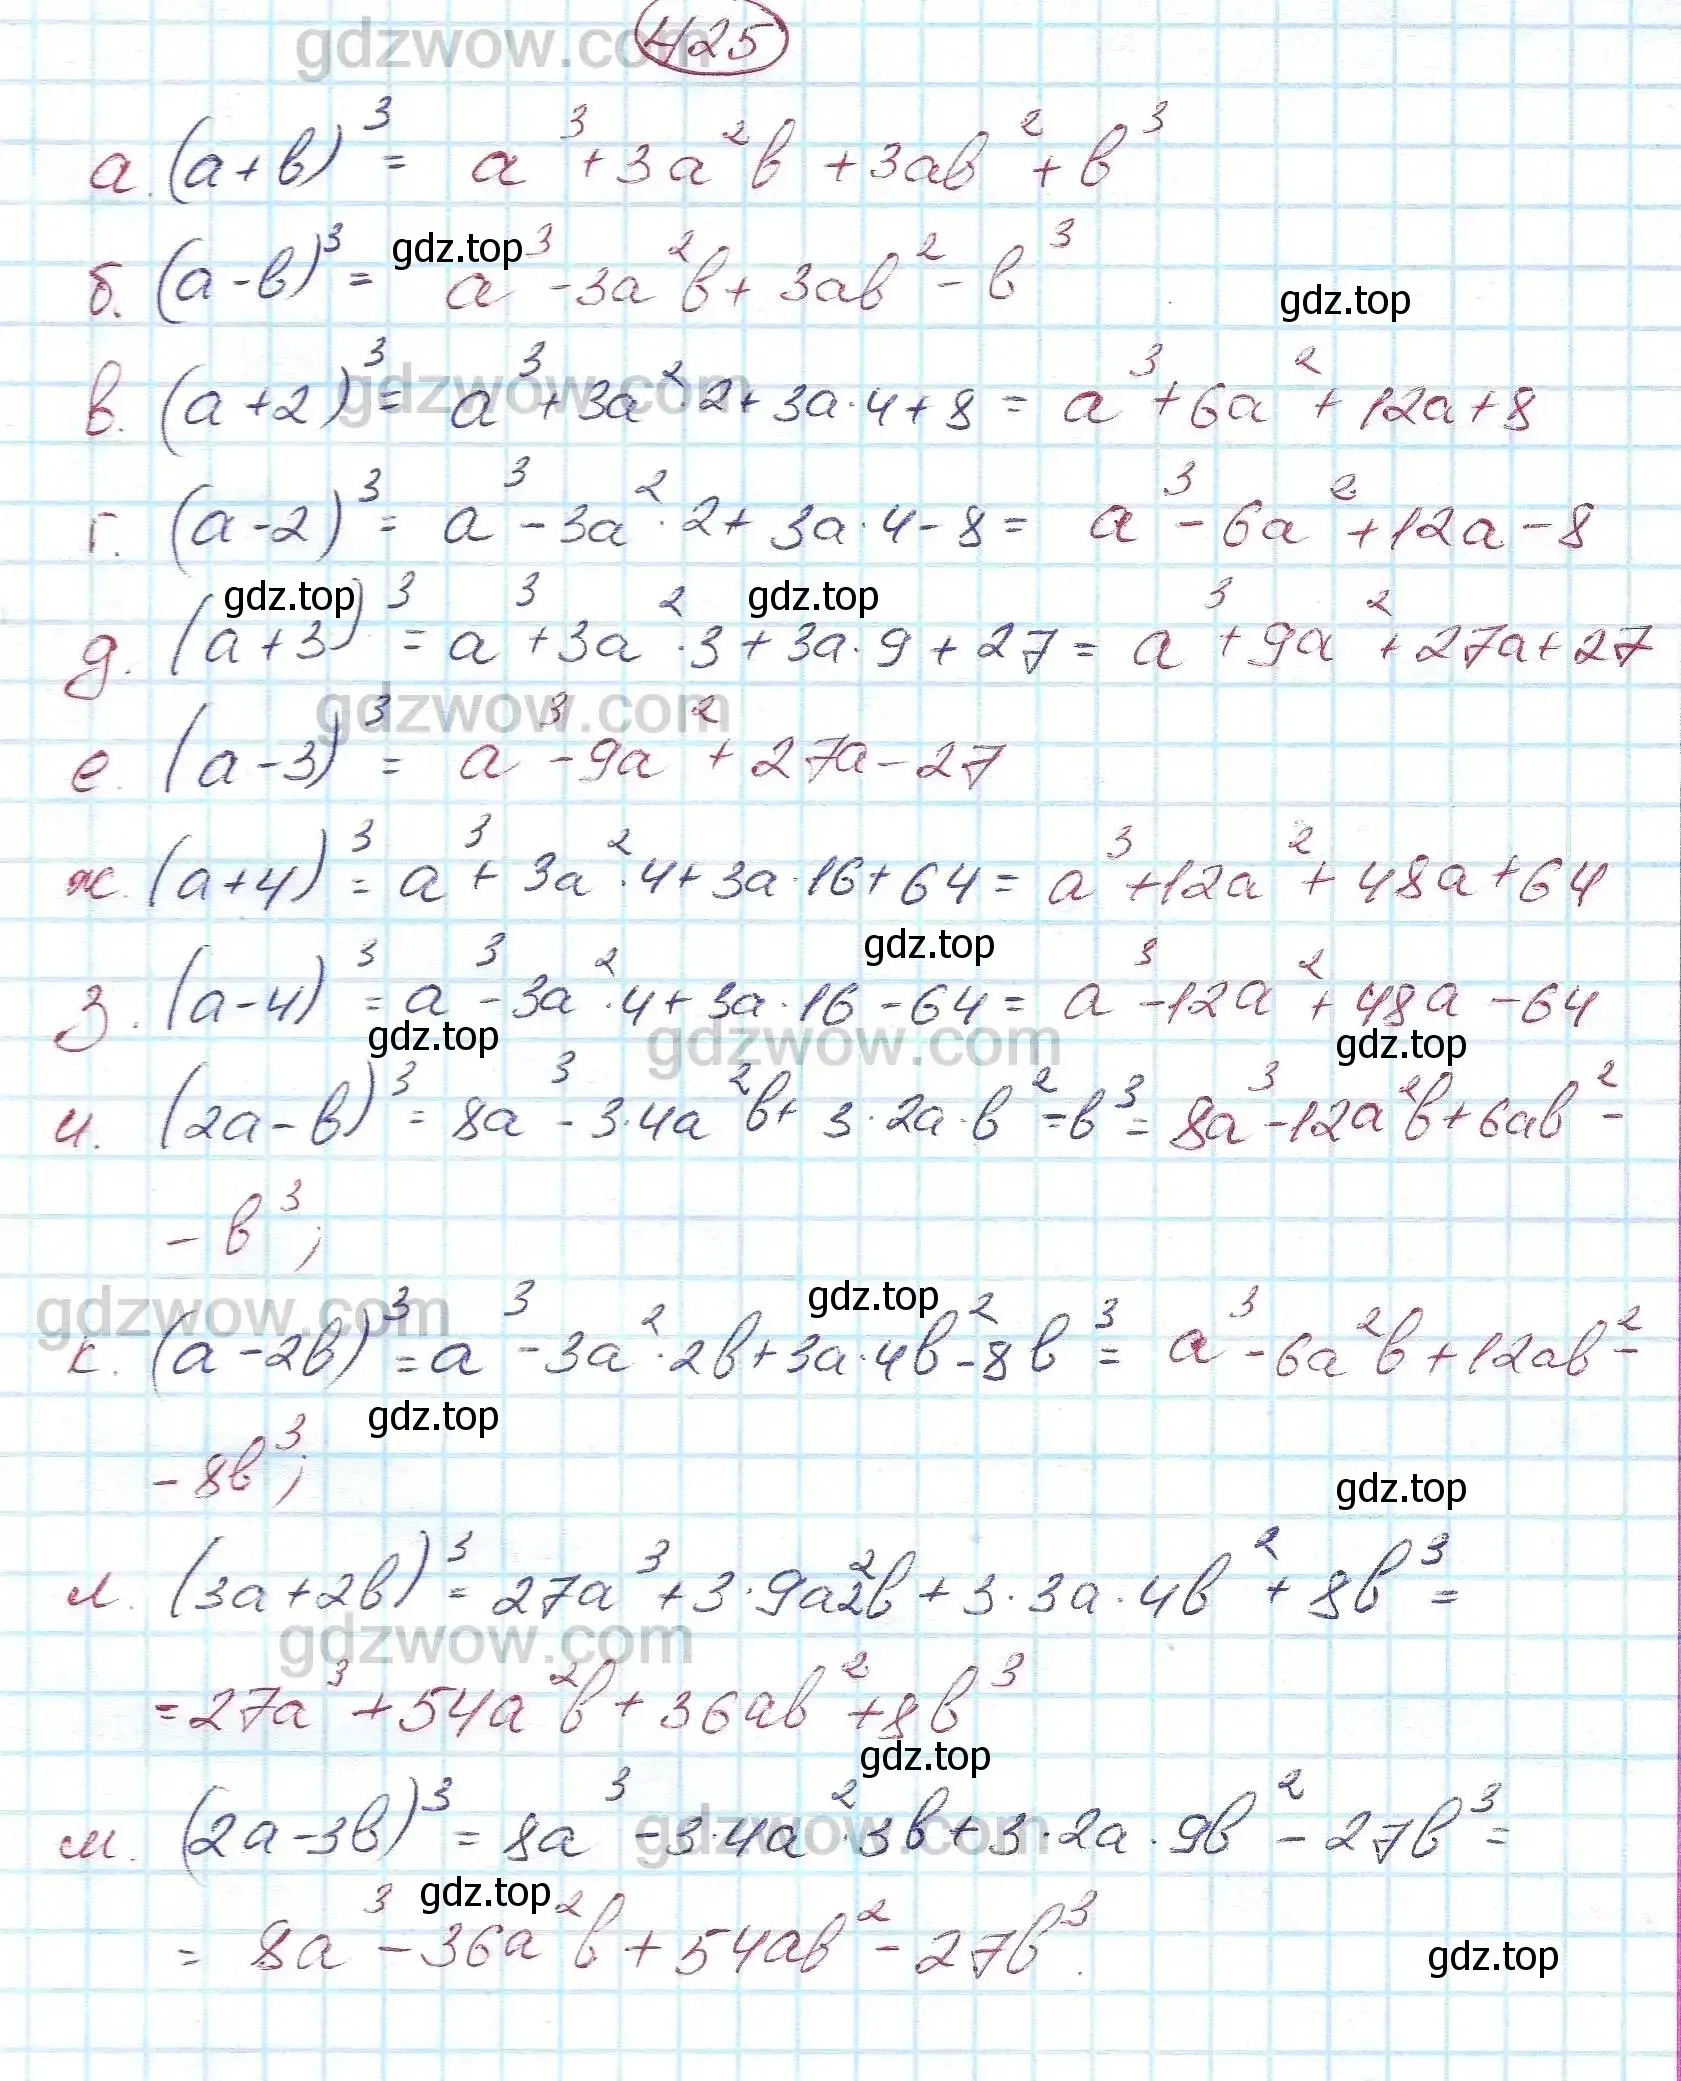 gdzwow.com
425
а. (a+b)³ = a³+3a²b+3ab²+b³
б. (a-b)³ = a³-3a²b+3ab²-b³
gdz.top
gdz.top
gdzwow.com
в. (a+2)³ = a³+3a²·2+3a·4+8 = a³+6a²+12a+8
г. (a-2)³ = a³-3a²·2+3a·4-8 = a³-6a²+12a-8
gdz.top gdz.top
д. (a+3)³ = a³+3a²·3+3a·9+27 = a³+9a²+27a+27
gdzwow.com
е. (a-3)³ = a³-9a²+27a-27
ж. (a+4)³ = a³+3a²·4+3a·16+64 = a³+12a²+48a+64
gdz.top
з. (a-4)³ = a³-3a²·4+3a·16-64 = a³-12a²+48a-64
gdz.top gdzwow.com gdz.top
и. (2a-b)³ = 8a³-3·4a²b+3·2a·b²=b³ = 8a³-12a²b+6ab²-
-b³;
gdzwow.com gdz.top
к. (a-2b)³ = a³-3a²·2b+3a·4b²-8b³ = a³-6a²b+12ab²-
gdz.top
-8b³;
gdz.top
л. (3a+2b)³ = 27a³+3·9a²2b+3·3a·4b²+8b³ =
gdzwow.com
=27a³+54a²b+36ab²+8b³
gdz.top
м. (2a-3b)³ = 8a³-3·4a²·3b+3·2a·9b²-27b³ =
gdzwow.com
gdz.top
= 8a³-36a²b+54ab²-27b³.
gdz.top